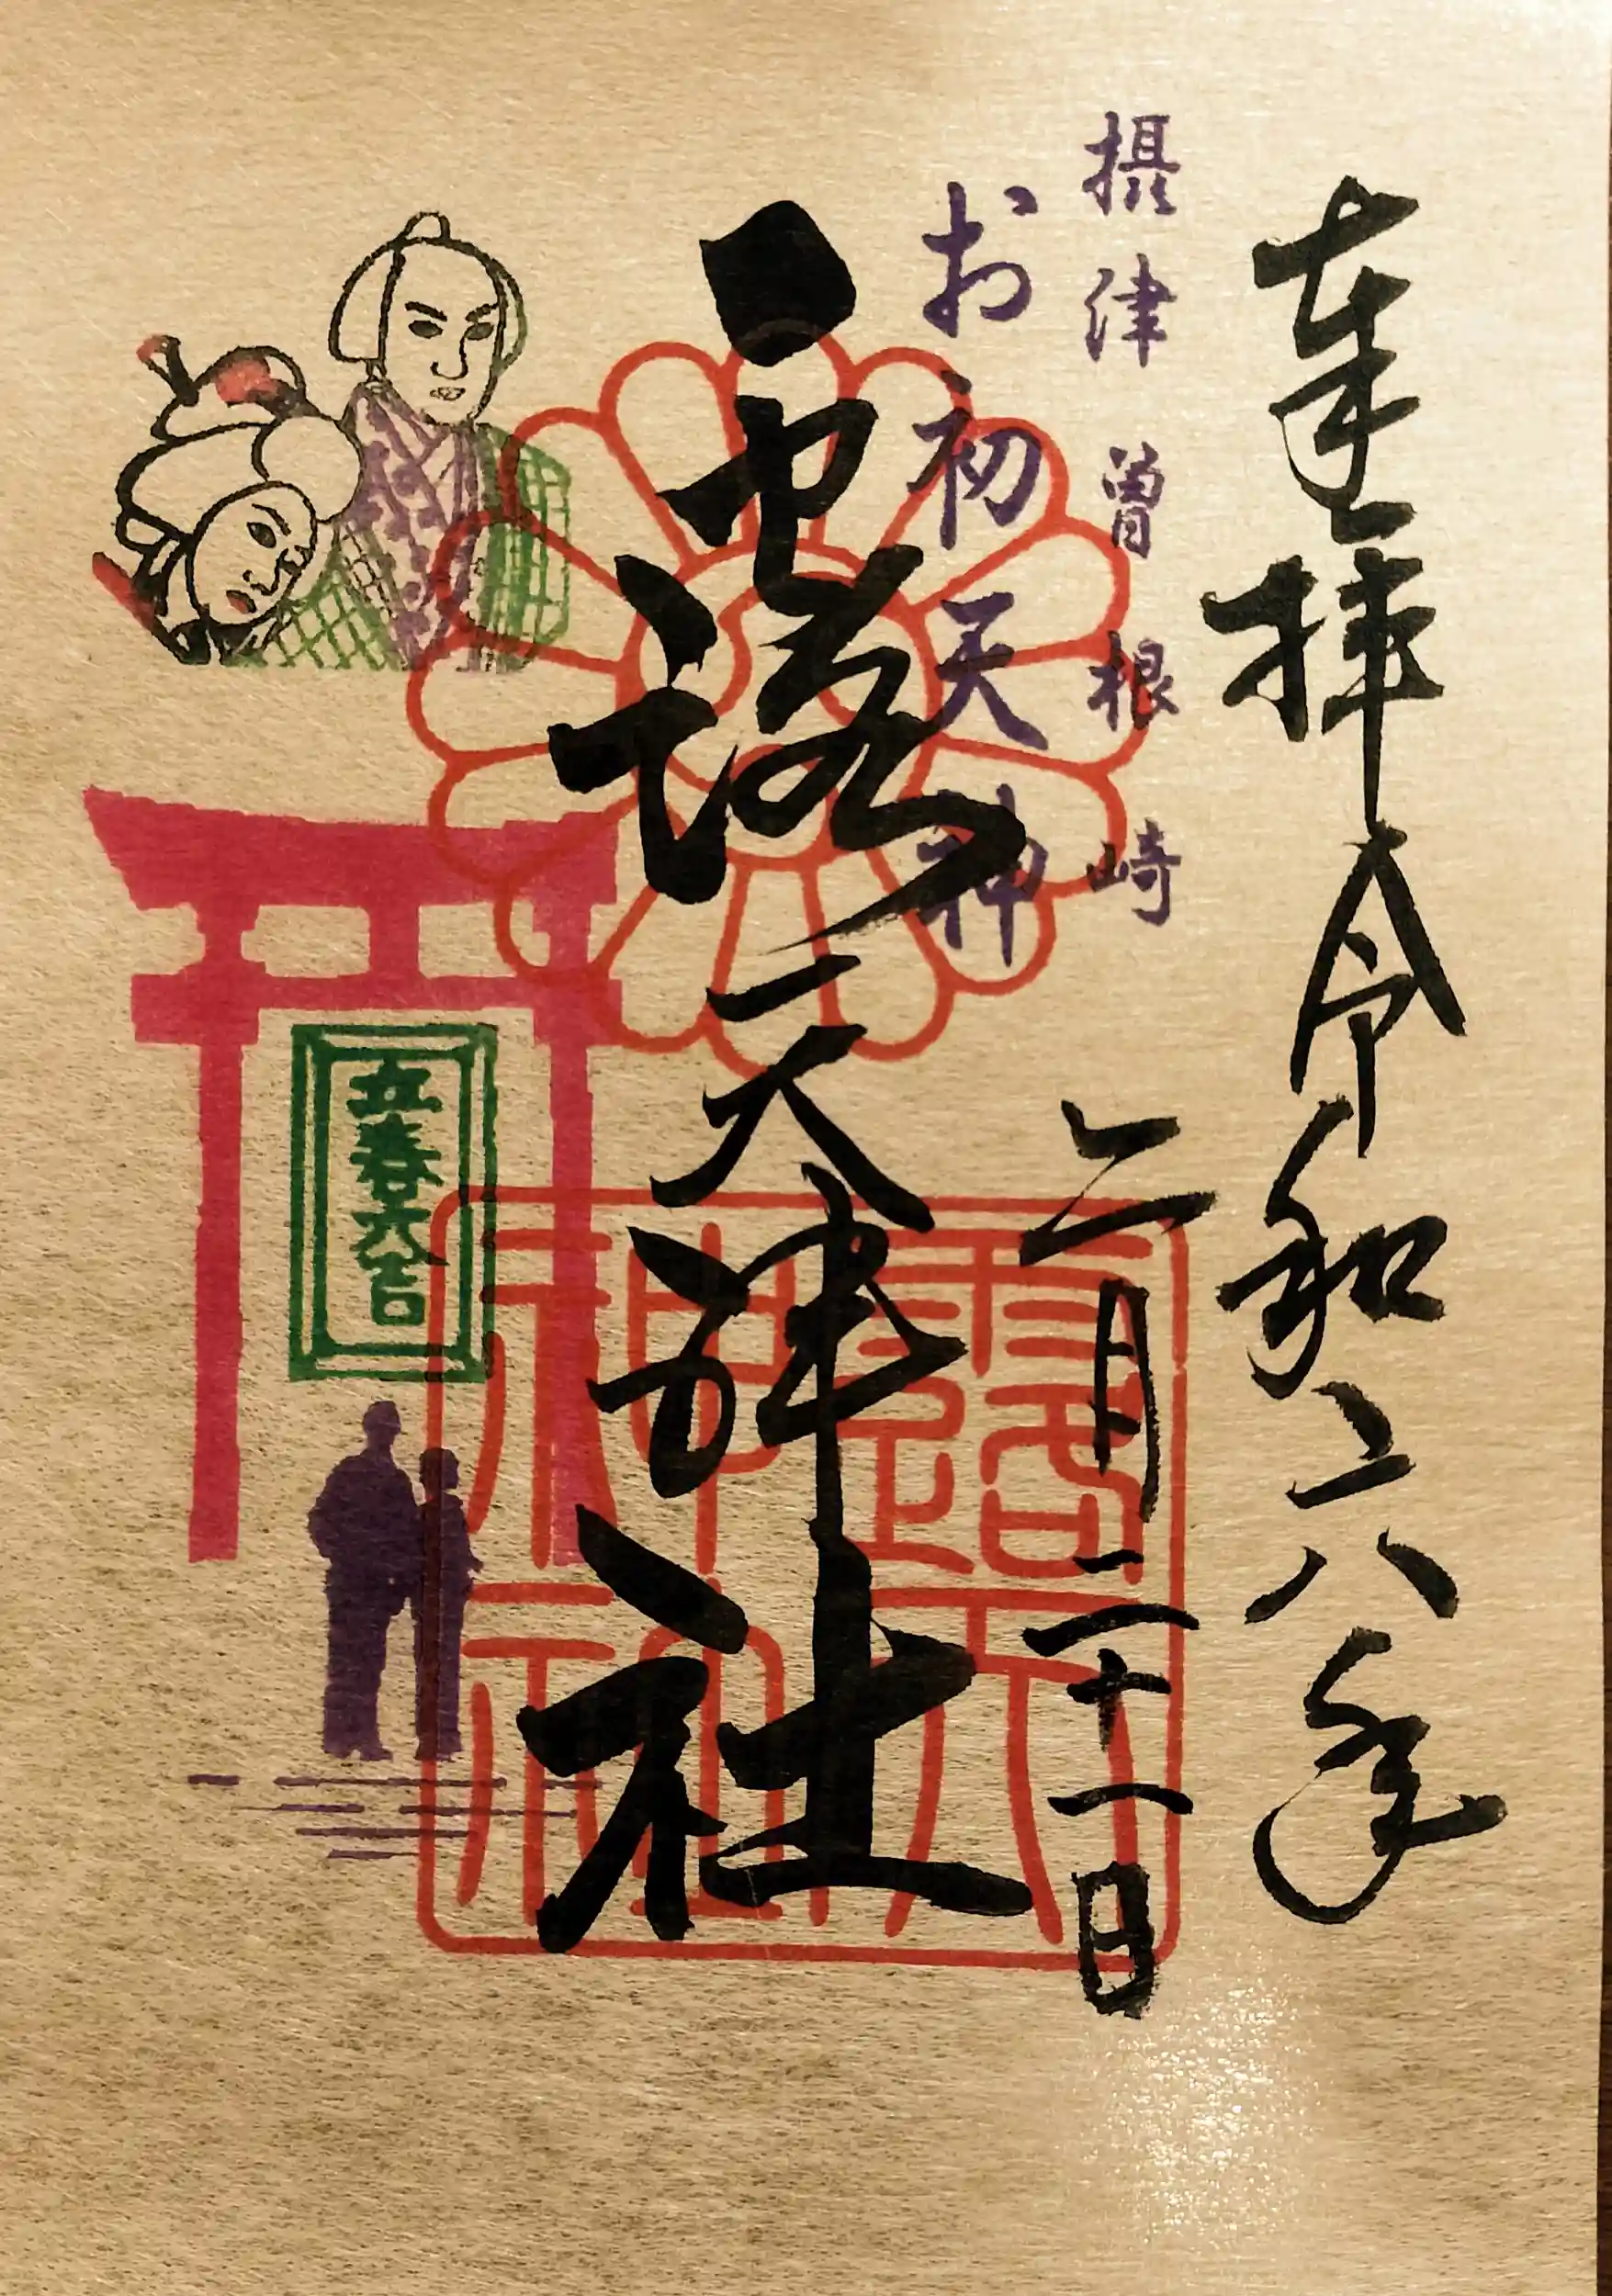 奉拝 令和六年
二月二十一日
摂津曽根崎
お初天神
露天神社
露天
神社
立春大吉